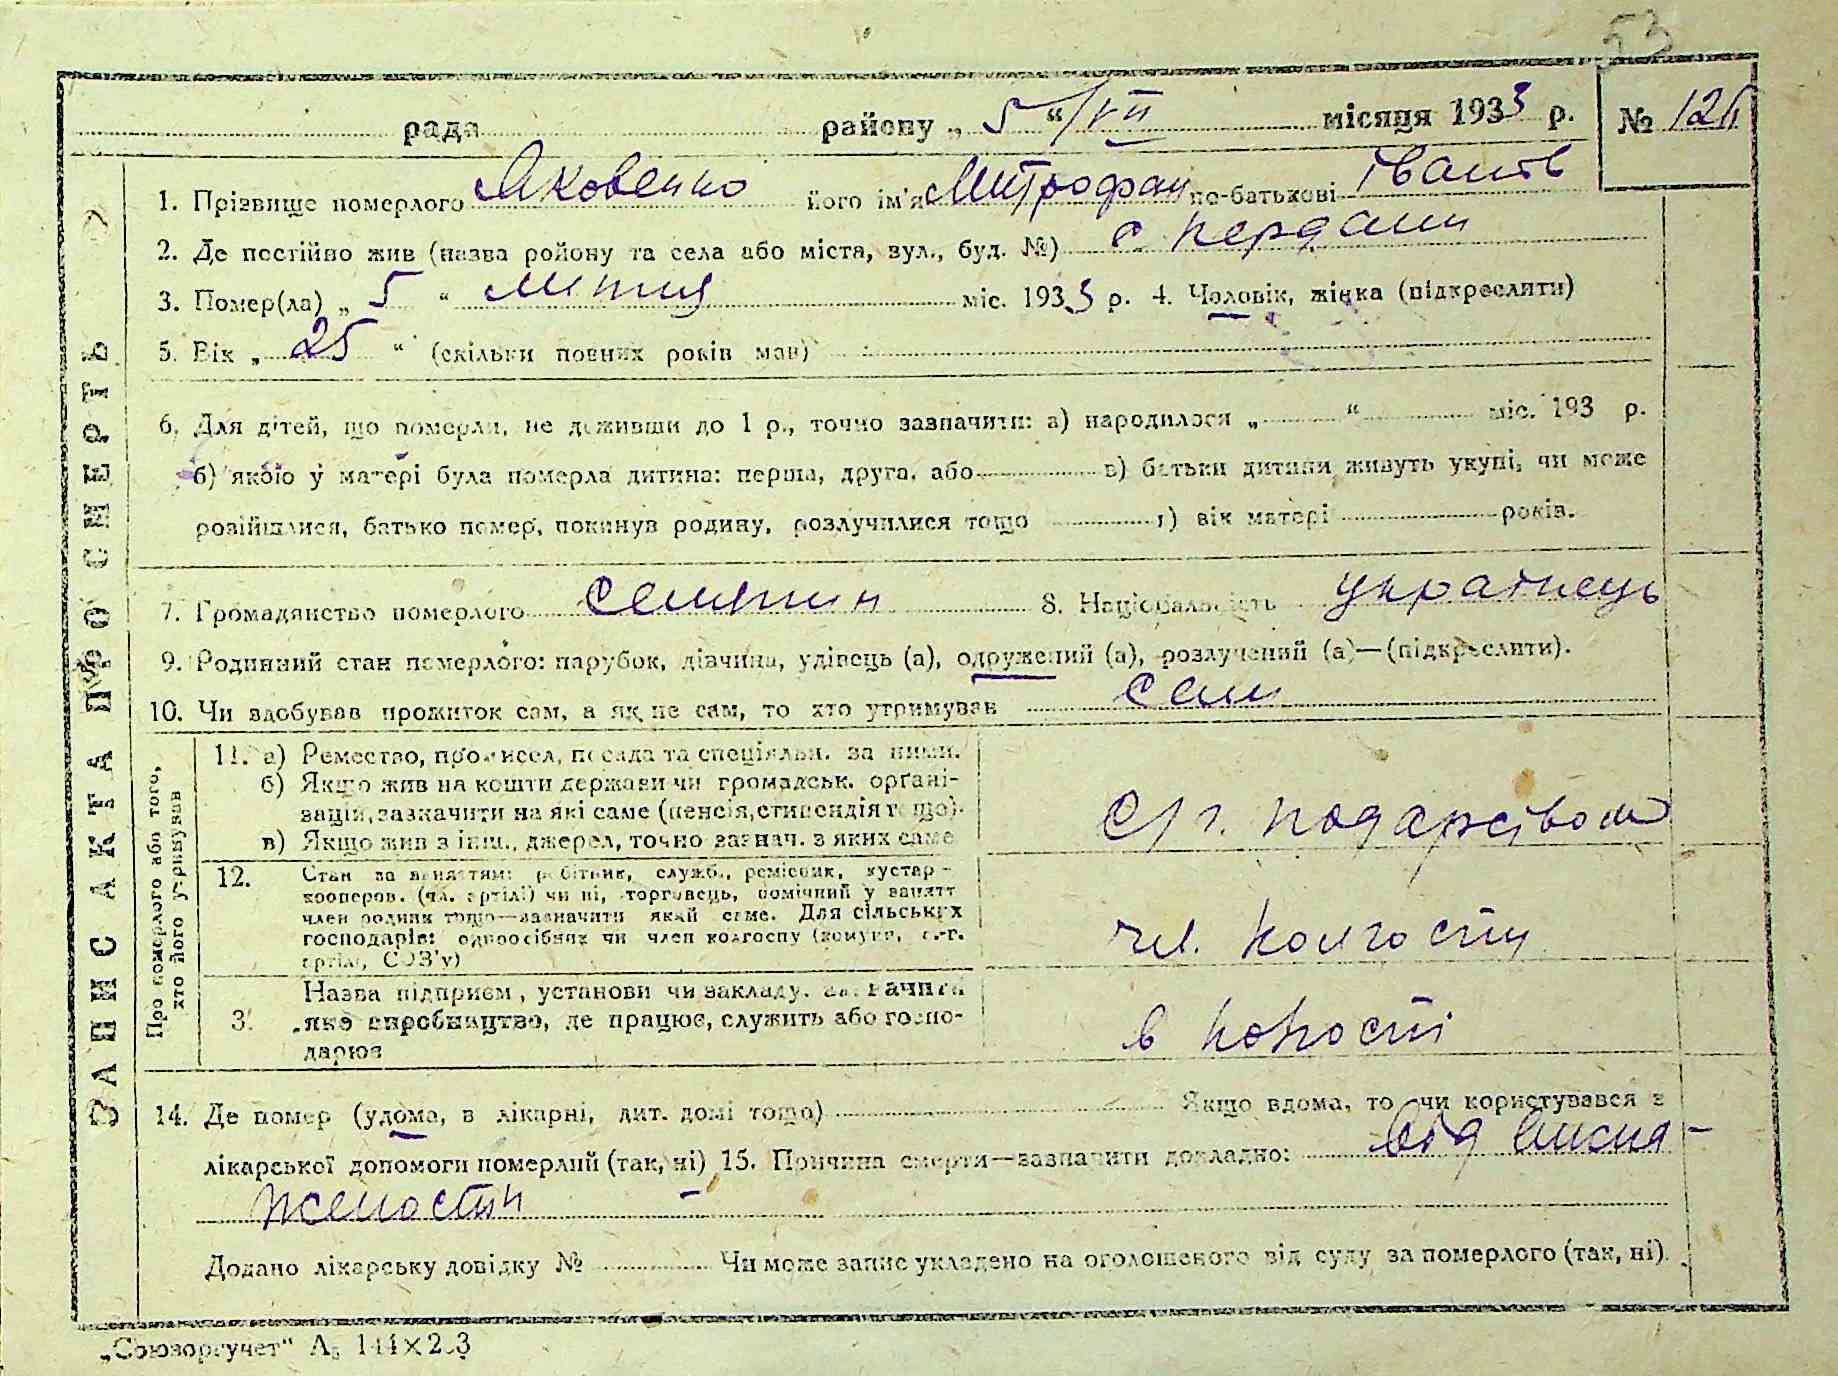 53
рада района „ 5 “ /VII місяця 1933 р. № 121
1. Прізвище померлого Яковенко його ім'я Митрофан по-батькові Іванів
2. Де постійно жив (назва ройону та села або міста, вул., буд. №) с
3. Помер(ла) „ 5 “ липня міс. 1933 р. 4. Чоловік, жінка (підкреслити)
5. Вік „ 25 “ (скільки повних років мав)
6. Для дітей, що померли, не доживши до 1 р., точно зазначити: а) народилося „ “ міс. 193 р.
б) якою у матері була померла дитина: перша, друга, або в) батьки дитини живуть укупі, чи може
розійшлися, батько помер, покинув родину, розлучилися тощо г) вік матері років.
7. Громадянство померлого селянин 8. Національність українець
9. Родинний стан померлого: парубок, дівчина, удівець (а), одружений (а), розлучений (а)—(підкреслити).
10. Чи здобував прожиток сам, а як не сам, то хто утримував сам
ЗАПИСКА ПРО СМЕРТЬ
Про померлого або того, хто його утримував
11. а) Ремество, промисел, посада та спеціяльн. за ними.
б) Якщо жив на кошти держави чи громадськ. органі-
зацій, зазначити на які саме (пенсія, стипендія тощо).
в) Якщо жив з інш., джерел, точно зазнач. з яких саме
с/г.
12. Стан за заняттям: робітник, служб., ремісник, кустар-
кооперов. (чл. артілі) чи ні, торговець, помічний у занятт
член родини тощо—зазначити який саме. Для сільських
господарів: одноосібник чи член колгоспу (комуни, с.-г.
артілі, СОЗ'у)
чл. колгоспу
3. Назва підприєм, установи чи закладу. зазначити
яке виробництво, де працює, служить або госпо-
дарює
в колгоспі
14. Де помер (удома, в лікарні, дит. домі тощо) Якщо вдома, то чи користувався з
лікарської допомоги померлий (так, ні) 15. Причина смерти—зазначити докладно: від висна-
женостин
Додано лікарську довідку № Чи може запис укладено на оголошеного від суду за померлого (так, ні).
„Союзоргучет“ А5 144×203